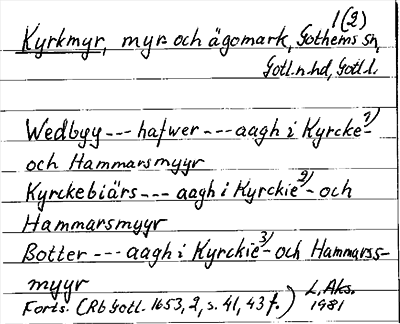 1(2)
Kyrkmyr, myr- och ägomark, Gothems sn,
Gotl.n.hd, Gotl.l.
Wedbyy --- hafwer --- aagh i Kyrcke-1)
och Hammarsmyyr
Kyrckebiärs --- aagh i Kyrckie2)- och
Hammarsmyyr
Botter --- aagh i Kyrckie3)- och Hammarss-
myyr
Forts. (Rb Gotl. 1653, 2, s. 41, 43 f.) L. Aks.
1981